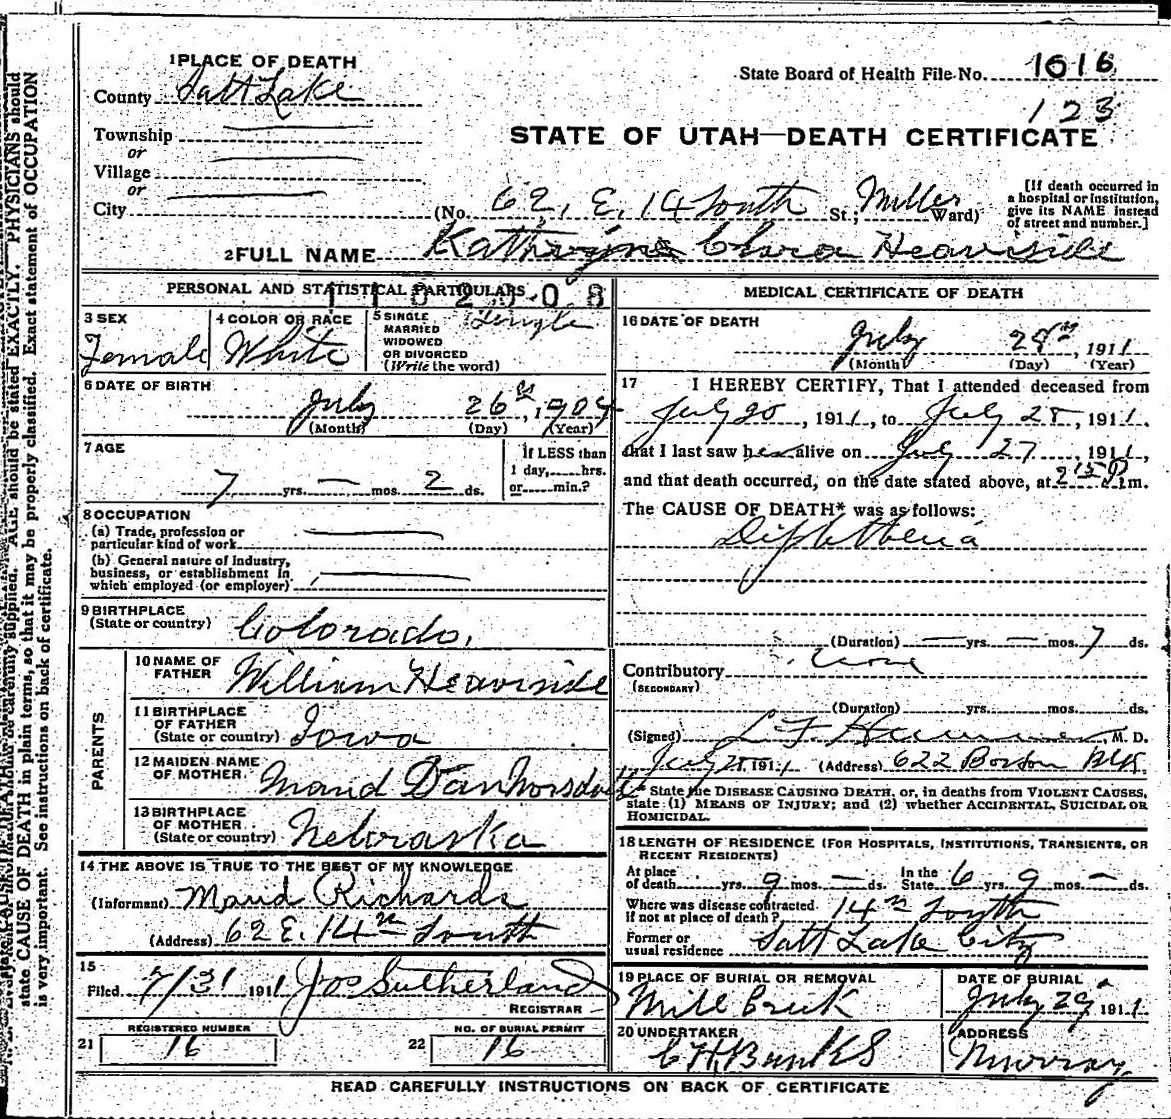 1 PLACE OF DEATH
County Salt Lake
Township
or
Village
or
City
State Board of Health File No. 1016
123
STATE OF UTAH—DEATH CERTIFICATE
(No. 62, E. 14 South St; Miller Ward)
[If death occurred in
a hospital or institution,
give its NAME instead
of street and number.]
2 FULL NAME Clara Heaviside
PERSONAL AND STATISTICAL PARTICULARS
3 SEX
Female
4 COLOR OR RACE
White
5 SINGLE
MARRIED
WIDOWED
OR DIVORCED
(Write the word)
Single
6 DATE OF BIRTH
July 26th, 1904
(Month) (Day) (Year)
7 AGE
7 yrs. — mos. 2 ds.
If LESS than
1 day, hrs.
or min.?
8 OCCUPATION
(a) Trade, profession or
particular kind of work
(b) General nature of industry,
business, or establishment in
which employed (or employer)
9 BIRTHPLACE
(State or country)
Colorado.
PARENTS
10 NAME OF
FATHER
William Heaviside
11 BIRTHPLACE
OF FATHER
(State or country)
Iowa
12 MAIDEN NAME
OF MOTHER
Maud
13 BIRTHPLACE
OF MOTHER
(State or country)
Nebraska
14 THE ABOVE IS TRUE TO THE BEST OF MY KNOWLEDGE
(Informant) Maud Richards
(Address) 62 E. 14th South
15
Filed 7/31 1911 Jos Sutherland
REGISTRAR
REGISTERED NUMBER
21 16
NO. OF BURIAL PERMIT
22 16
MEDICAL CERTIFICATE OF DEATH
16 DATE OF DEATH
July 28th, 1911
(Month) (Day) (Year)
17 I HEREBY CERTIFY, That I attended deceased from
July 20, 1911, to July 28, 1911.
that I last saw her alive on July 27, 1911,
and that death occurred, on the date stated above, at 2 15 P.m.
The CAUSE OF DEATH* was as follows:
Diphtheria
(Duration) — yrs. — mos. 7 ds.
Contributory
(SECONDARY)
(Duration) yrs. mos. ds.
(Signed) L. F. M. D.
July 28 1911 (Address) 622 Boston Blk.
* State the DISEASE CAUSING DEATH, or, in deaths from VIOLENT CAUSES,
state (1) MEANS OF INJURY; and (2) whether ACCIDENTAL, SUICIDAL OR
HOMICIDAL.
18 LENGTH OF RESIDENCE (FOR HOSPITALS, INSTITUTIONS, TRANSIENTS, OR
RECENT RESIDENTS)
At place
of death yrs. 9 mos. — ds.
In the
State 6 yrs. 9 mos. — ds.
Where was disease contracted
if not at place of death? 14th South
Former or
usual residence Salt Lake City
19 PLACE OF BURIAL OR REMOVAL
Mill Creek
DATE OF BURIAL
July 29 1911.
20 UNDERTAKER
ADDRESS
Murray
READ CAREFULLY INSTRUCTIONS ON BACK OF CERTIFICATE
AGE should be stated EXACTLY. PHYSICIANS should
state CAUSE OF DEATH in plain terms, so that it may be properly classified. Exact statement of OCCUPATION
is very important. See instructions on back of certificate.